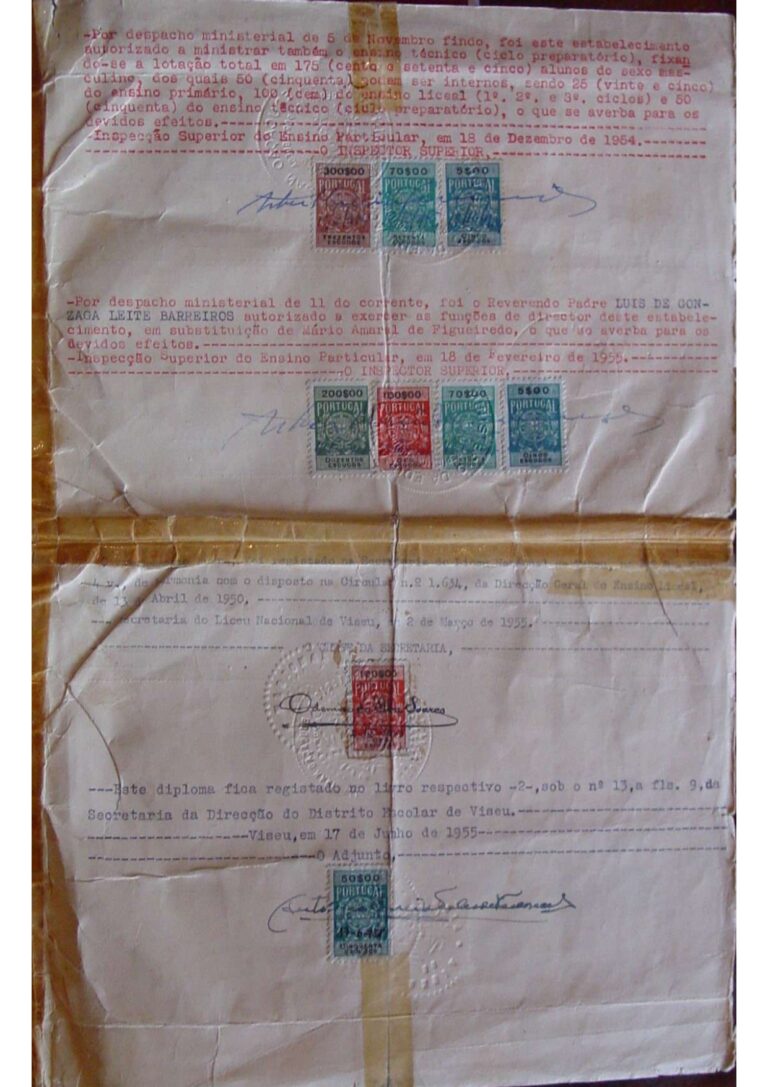 -Por despacho ministerial de 5 de Novembro findo, foi este estabelecimento
autorizado a ministrar também o ensino técnico (ciclo preparatório), fixan
do-se a lotação total em 175 (cento e setenta e cinco) alunos do sexo mas-
culino, dos quais 50 (cinquenta) podem ser internos, sendo 25 (vinte e cinco)
do ensino primário, 100 (cem) do ensino liceal (1º. 2º. e 3º. ciclos) e 50
(cinquenta) do ensino técnico (ciclo preparatório), o que se averba para os
devidos efeitos.
-Inspecção Superior do Ensino Particular, em 18 de Dezembro de 1954.
O INSPECTOR SUPERIOR,
300$00 70$00 5$00
PORTUGAL PORTUGAL PORTUGAL
TREZENTOS ESCUDOS SETENTA ESCUDOS CINCO ESCUDOS
-Por despacho ministerial de 11 do corrente, foi o Reverendo Padre LUIS DE GON-
ZAGA LEITE BARREIROS autorizado a exercer as funções de director deste estabele-
cimento, em substituição de Mário Amaral de Figueiredo, o que se averba para os
devidos efeitos.
-Inspecção Superior do Ensino Particular, em 18 de Fevereiro de 1955.
O INSPECTOR SUPERIOR,
200$00 100$00 70$00 5$00
PORTUGAL PORTUGAL PORTUGAL PORTUGAL
DUZENTOS ESCUDOS CEM ESCUDOS SETENTA ESCUDOS CINCO ESCUDOS
registado
4 v., de harmonia com o disposto na Circular n.º 1.634, da Direcção Geral do Ensino Liceal,
de 13 de Abril de 1950,
---Secretaria do Liceu Nacional de Viseu, 2 de Março de 1955.
O CHEFE DA SECRETARIA,
100$00
Soares
---Este diploma fica registado no livro respectivo -2-, sob o nº 13, a fls. 9, da
Secretaria da Direcção do Distrito Escolar de Viseu.
Viseu, em 17 de Junho de 1955
O Adjunto,
50$00
PORTUGAL
CINQUENTA ESCUDOS